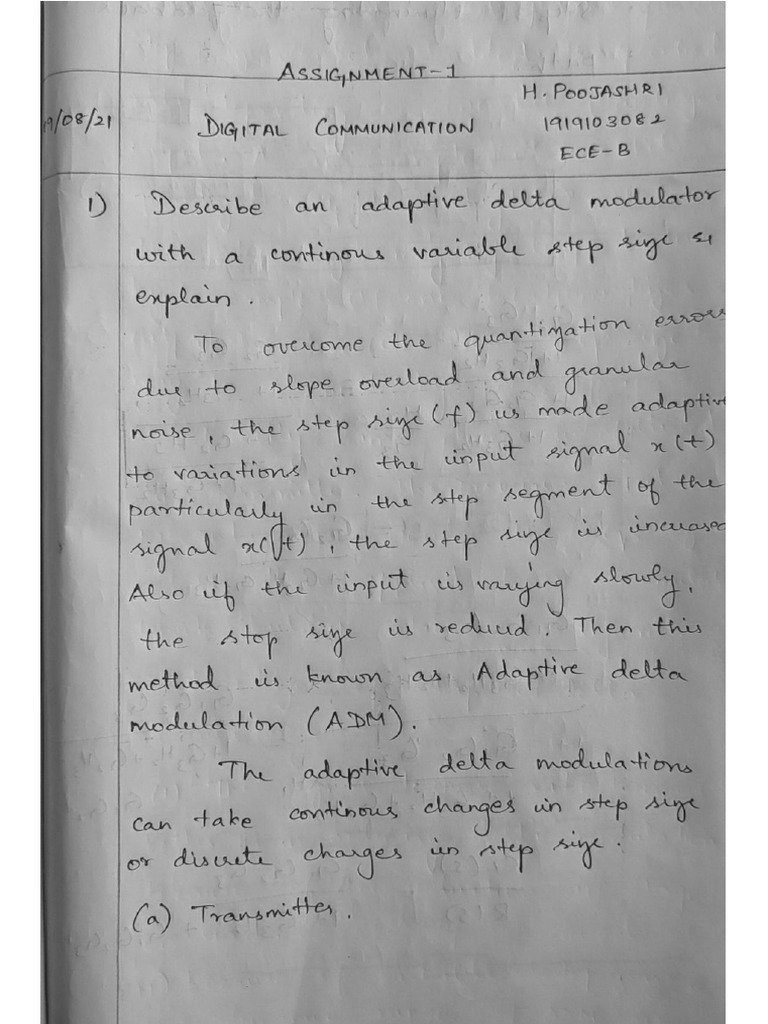 ASSIGNMENT-1
H. POOJASHRI
19/08/21
DIGITAL COMMUNICATION
1919103082
ECE-B
1) Describe an adaptive delta modulator
with a continous variable step size &
explain.
To overcome the quantization errors
due to slope overload and granular
noise, the step size (f) is made adaptive
to variations in the input signal x(t)
particularly in the step segment of the
signal x(t), the step size is increased
Also if the input is varying slowly,
the stop size is reduced. Then this
method is known as Adaptive delta
modulation (ADM).
The adaptive delta modulations
can take continous changes in step size
or discrete changes in step size.
(a) Transmitter.